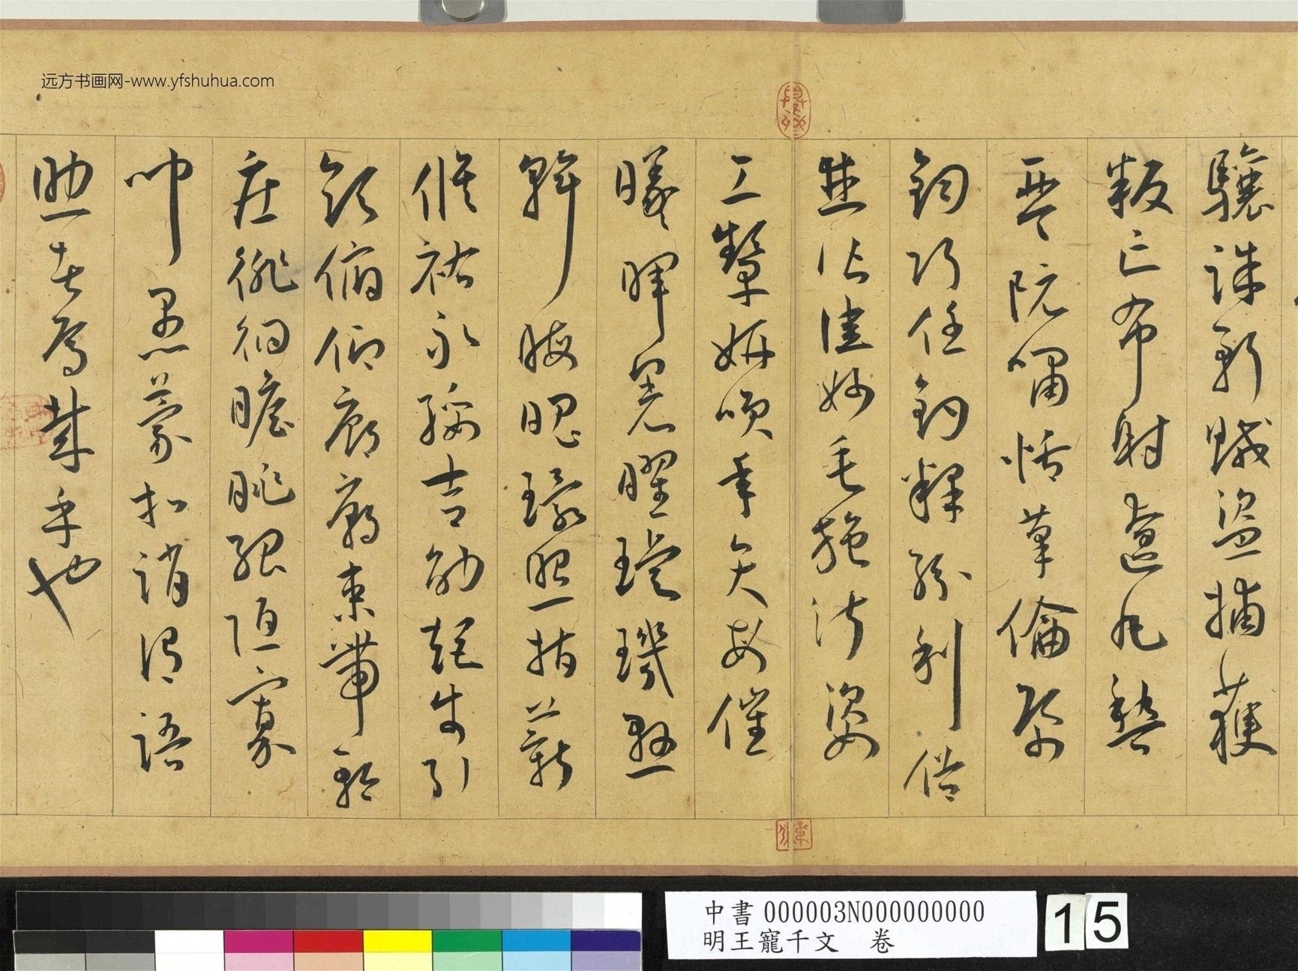 远方书画网-www.yfshuhua.com
驤誅斬賊盜捕獲
叛亡布射遼丸嵇
琴阮嘯恬筆倫紙
鈞巧任釣釋紛利俗
並皆佳妙毛施淑姿
工顰妍笑年矢每催
曦暉朗曜璇璣懸
斡晦魄環照指薪
修祜永綏吉劭矩步引
領俯仰廊廟束帶矜
莊徘徊瞻眺孤陋寡
聞愚蒙等誚謂語
助者焉哉乎也
中書 000003N000000000
明王寵千文 卷
15